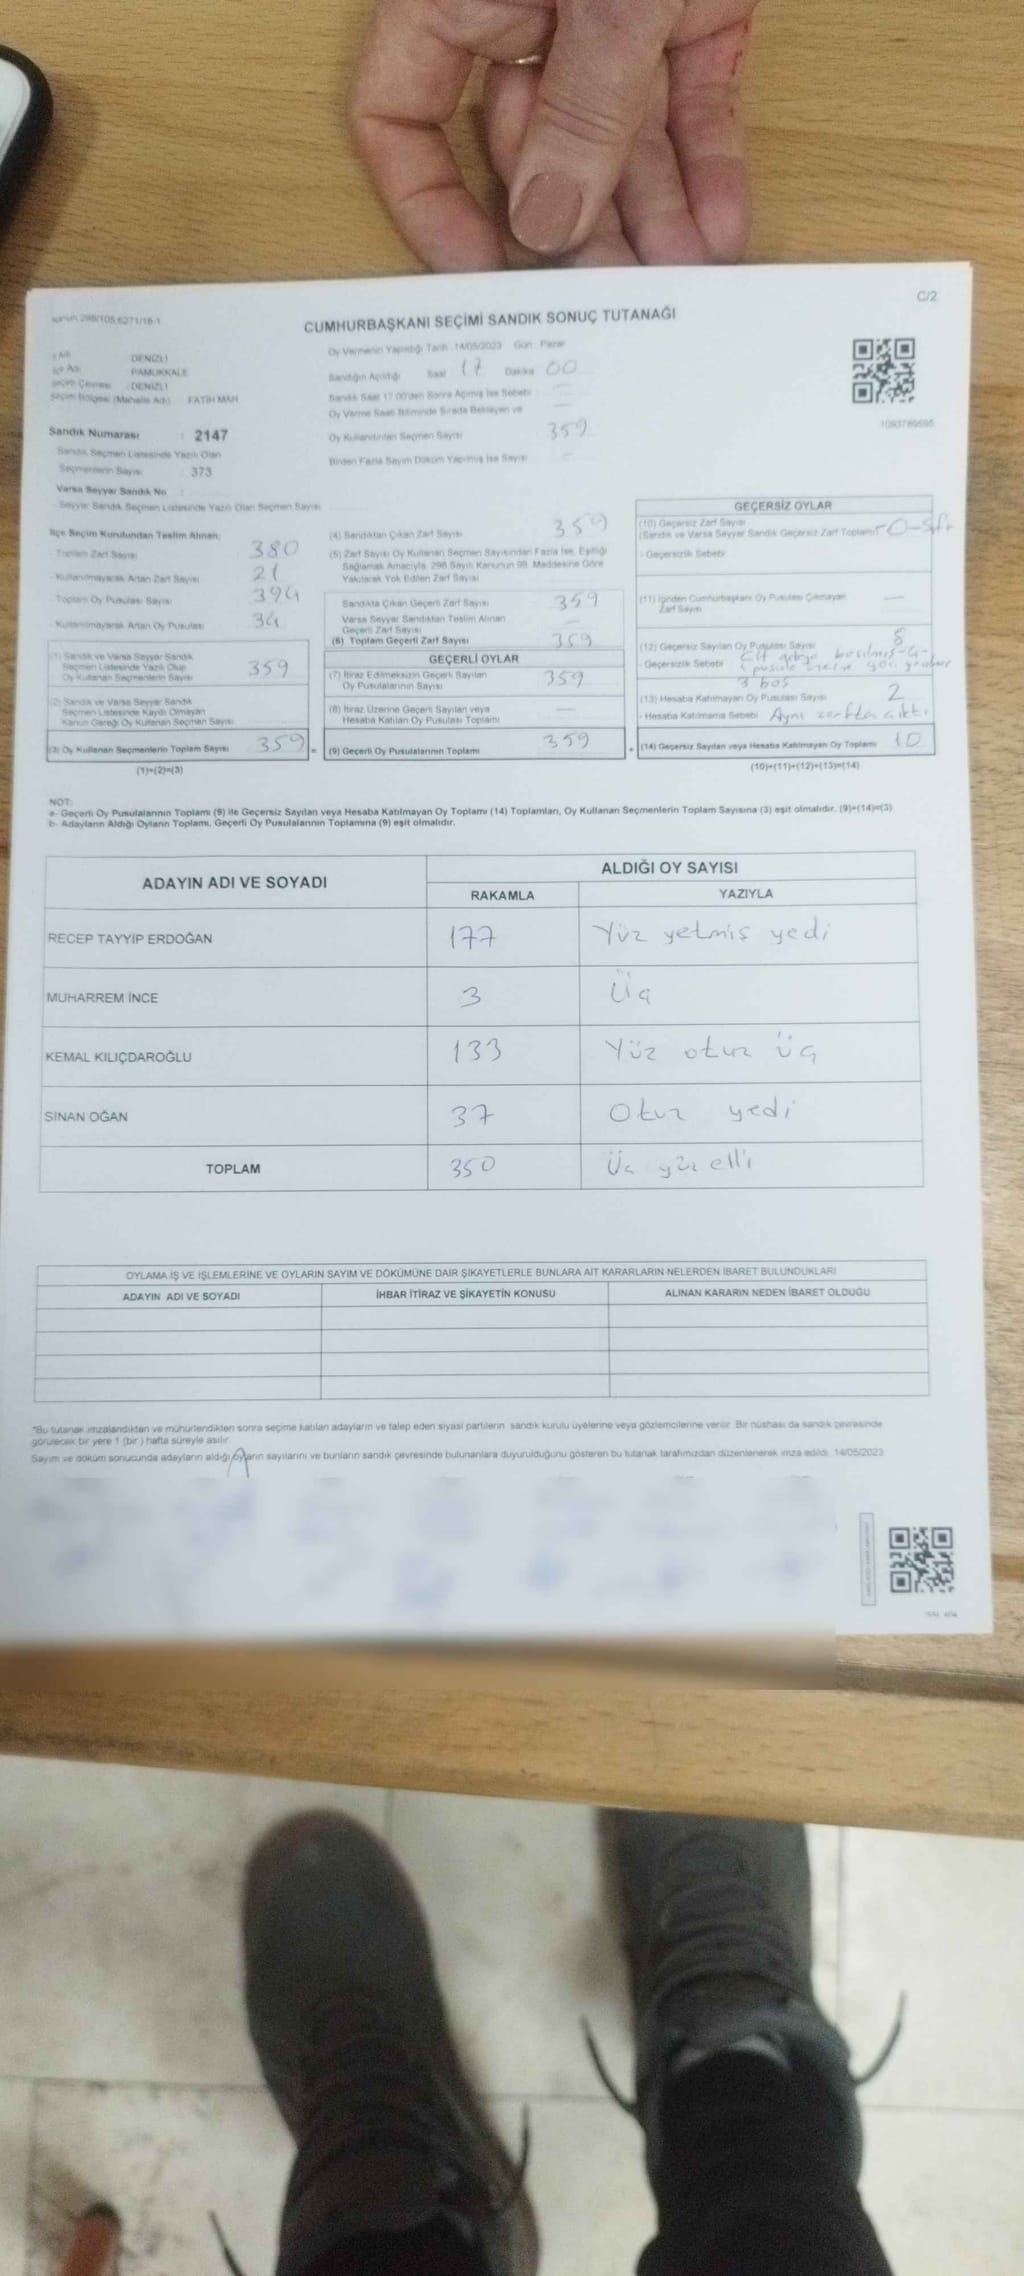 C/2
CUMHURBAŞKANI SEÇİMİ SANDIK SONUÇ TUTANAĞI
Oy Vermenin Yapıldığı Tarih 14/05/2023 Gün: Pazar
DENİZLİ
PAMUKKALE
Seçim Çevresi : DENİZLİ
Seçim Bölgesi (Mahalle Adı) : FATİH MAH
Sandığın Açıldığı Saat 17 Dakika 00
Sandık Saat 17.00'den Sonra Açılmış İse Sebebi —
Oy Verme Saati Bitiminde Sırada Bekleyen ve —
Oy Kullandırılan Seçmen Sayısı 359
Birden Fazla Sayım Döküm Yapılmış İse Sayısı —
Sandık Numarası : 2147
Sandık Seçmen Listesinde Yazılı Olan
Seçmenlerin Sayısı : 373
Varsa Seyyar Sandık No :
Seyyar Sandık Seçmen Listesinde Yazılı Olan Seçmen Sayısı
İlçe Seçim Kurulundan Teslim Alınan;
- Toplam Zarf Sayısı 380
- Kullanılmayarak Artan Zarf Sayısı 21
- Toplam Oy Pusulası Sayısı 394
- Kullanılmayarak Artan Oy Pusulası 34
(1) Sandık ve Varsa Seyyar Sandık
Seçmen Listesinde Yazılı Olup
Oy Kullanan Seçmenlerin Sayısı 359
(2) Sandık ve Varsa Seyyar Sandık
Seçmen Listesinde Kaydı Olmayan
Kanun Gereği Oy Kullanan Seçmen Sayısı
(3) Oy Kullanan Seçmenlerin Toplam Sayısı 359 =
(1)+(2)=(3)
(4) Sandıktan Çıkan Zarf Sayısı 359
(5) Zarf Sayısı Oy Kullanan Seçmen Sayısından Fazla İse, Eşitliği
Sağlamak Amacıyla, 298 Sayılı Kanunun 98. Maddesine Göre
Yakılarak Yok Edilen Zarf Sayısı
Sandıkta Çıkan Geçerli Zarf Sayısı 359
Varsa Seyyar Sandıktan Teslim Alınan
Geçerli Zarf Sayısı —
(6) Toplam Geçerli Zarf Sayısı 359
GEÇERLİ OYLAR
(7) İtiraz Edilmeksizin Geçerli Sayılan
Oy Pusulalarının Sayısı 359
(8) İtiraz Üzerine Geçerli Sayılan veya
Hesaba Katılan Oy Pusulası Toplamı —
(9) Geçerli Oy Pusulalarının Toplamı 359 +
GEÇERSİZ OYLAR
(10) Geçersiz Zarf Sayısı
(Sandık ve Varsa Seyyar Sandık Geçersiz Zarf Toplamı) 0-Sıfır
- Geçersizlik Sebebi
(11) İçinden Cumhurbaşkanı Oy Pusulası Çıkmayan
Zarf Sayısı —
(12) Geçersiz Sayılan Oy Pusulası Sayısı 8
- Geçersizlik Sebebi basılmış-4-
pusula üzerine yazı
3 boş
(13) Hesaba Katılmayan Oy Pusulası Sayısı 2
- Hesaba Katılmama Sebebi: Aynı zarfta çıktı
(14) Geçersiz Sayılan veya Hesaba Katılmayan Oy Toplamı 10
(10)+(11)+(12)+(13)=(14)
NOT:
a- Geçerli Oy Pusulalarının Toplamı (9) ile Geçersiz Sayılan veya Hesaba Katılmayan Oy Toplamı (14) Toplamları, Oy Kullanan Seçmenlerin Toplam Sayısına (3) eşit olmalıdır. (9)+(14)=(3)
b- Adayların Aldığı Oyların Toplamı, Geçerli Oy Pusulalarının Toplamına (9) eşit olmalıdır.
ADAYIN ADI VE SOYADI ALDIĞI OY SAYISI
RAKAMLA YAZIYLA
RECEP TAYYİP ERDOĞAN 177 Yüz yetmiş yedi
MUHARREM İNCE 3 Üç
KEMAL KILIÇDAROĞLU 133 Yüz otuz üç
SİNAN OĞAN 37 Otuz yedi
TOPLAM 350 Üç yüz elli
OYLAMA İŞ VE İŞLEMLERİNE VE OYLARIN SAYIM VE DÖKÜMÜNE DAİR ŞİKAYETLERLE BUNLARA AİT KARARLARIN NELERDEN İBARET BULUNDUKLARI
ADAYIN ADI VE SOYADI İHBAR İTİRAZ VE ŞİKAYETİN KONUSU ALINAN KARARIN NEDEN İBARET OLDUĞU
*Bu tutanak imzalandıktan ve mühürlendikten sonra seçime katılan adayların ve talep eden siyasi partilerin sandık kurulu üyelerine veya gözlemcilerine verilir. Bir nüshası da sandık çevresinde
görülecek bir yere 1 (bir) hafta süreyle asılır.
Sayım ve döküm sonucunda adayların aldığı oyların sayılarını ve bunların sandık çevresinde bulunanlara duyurulduğunu gösteren bu tutanak tarafımızdan düzenlenerek imza edildi. 14/05/2023